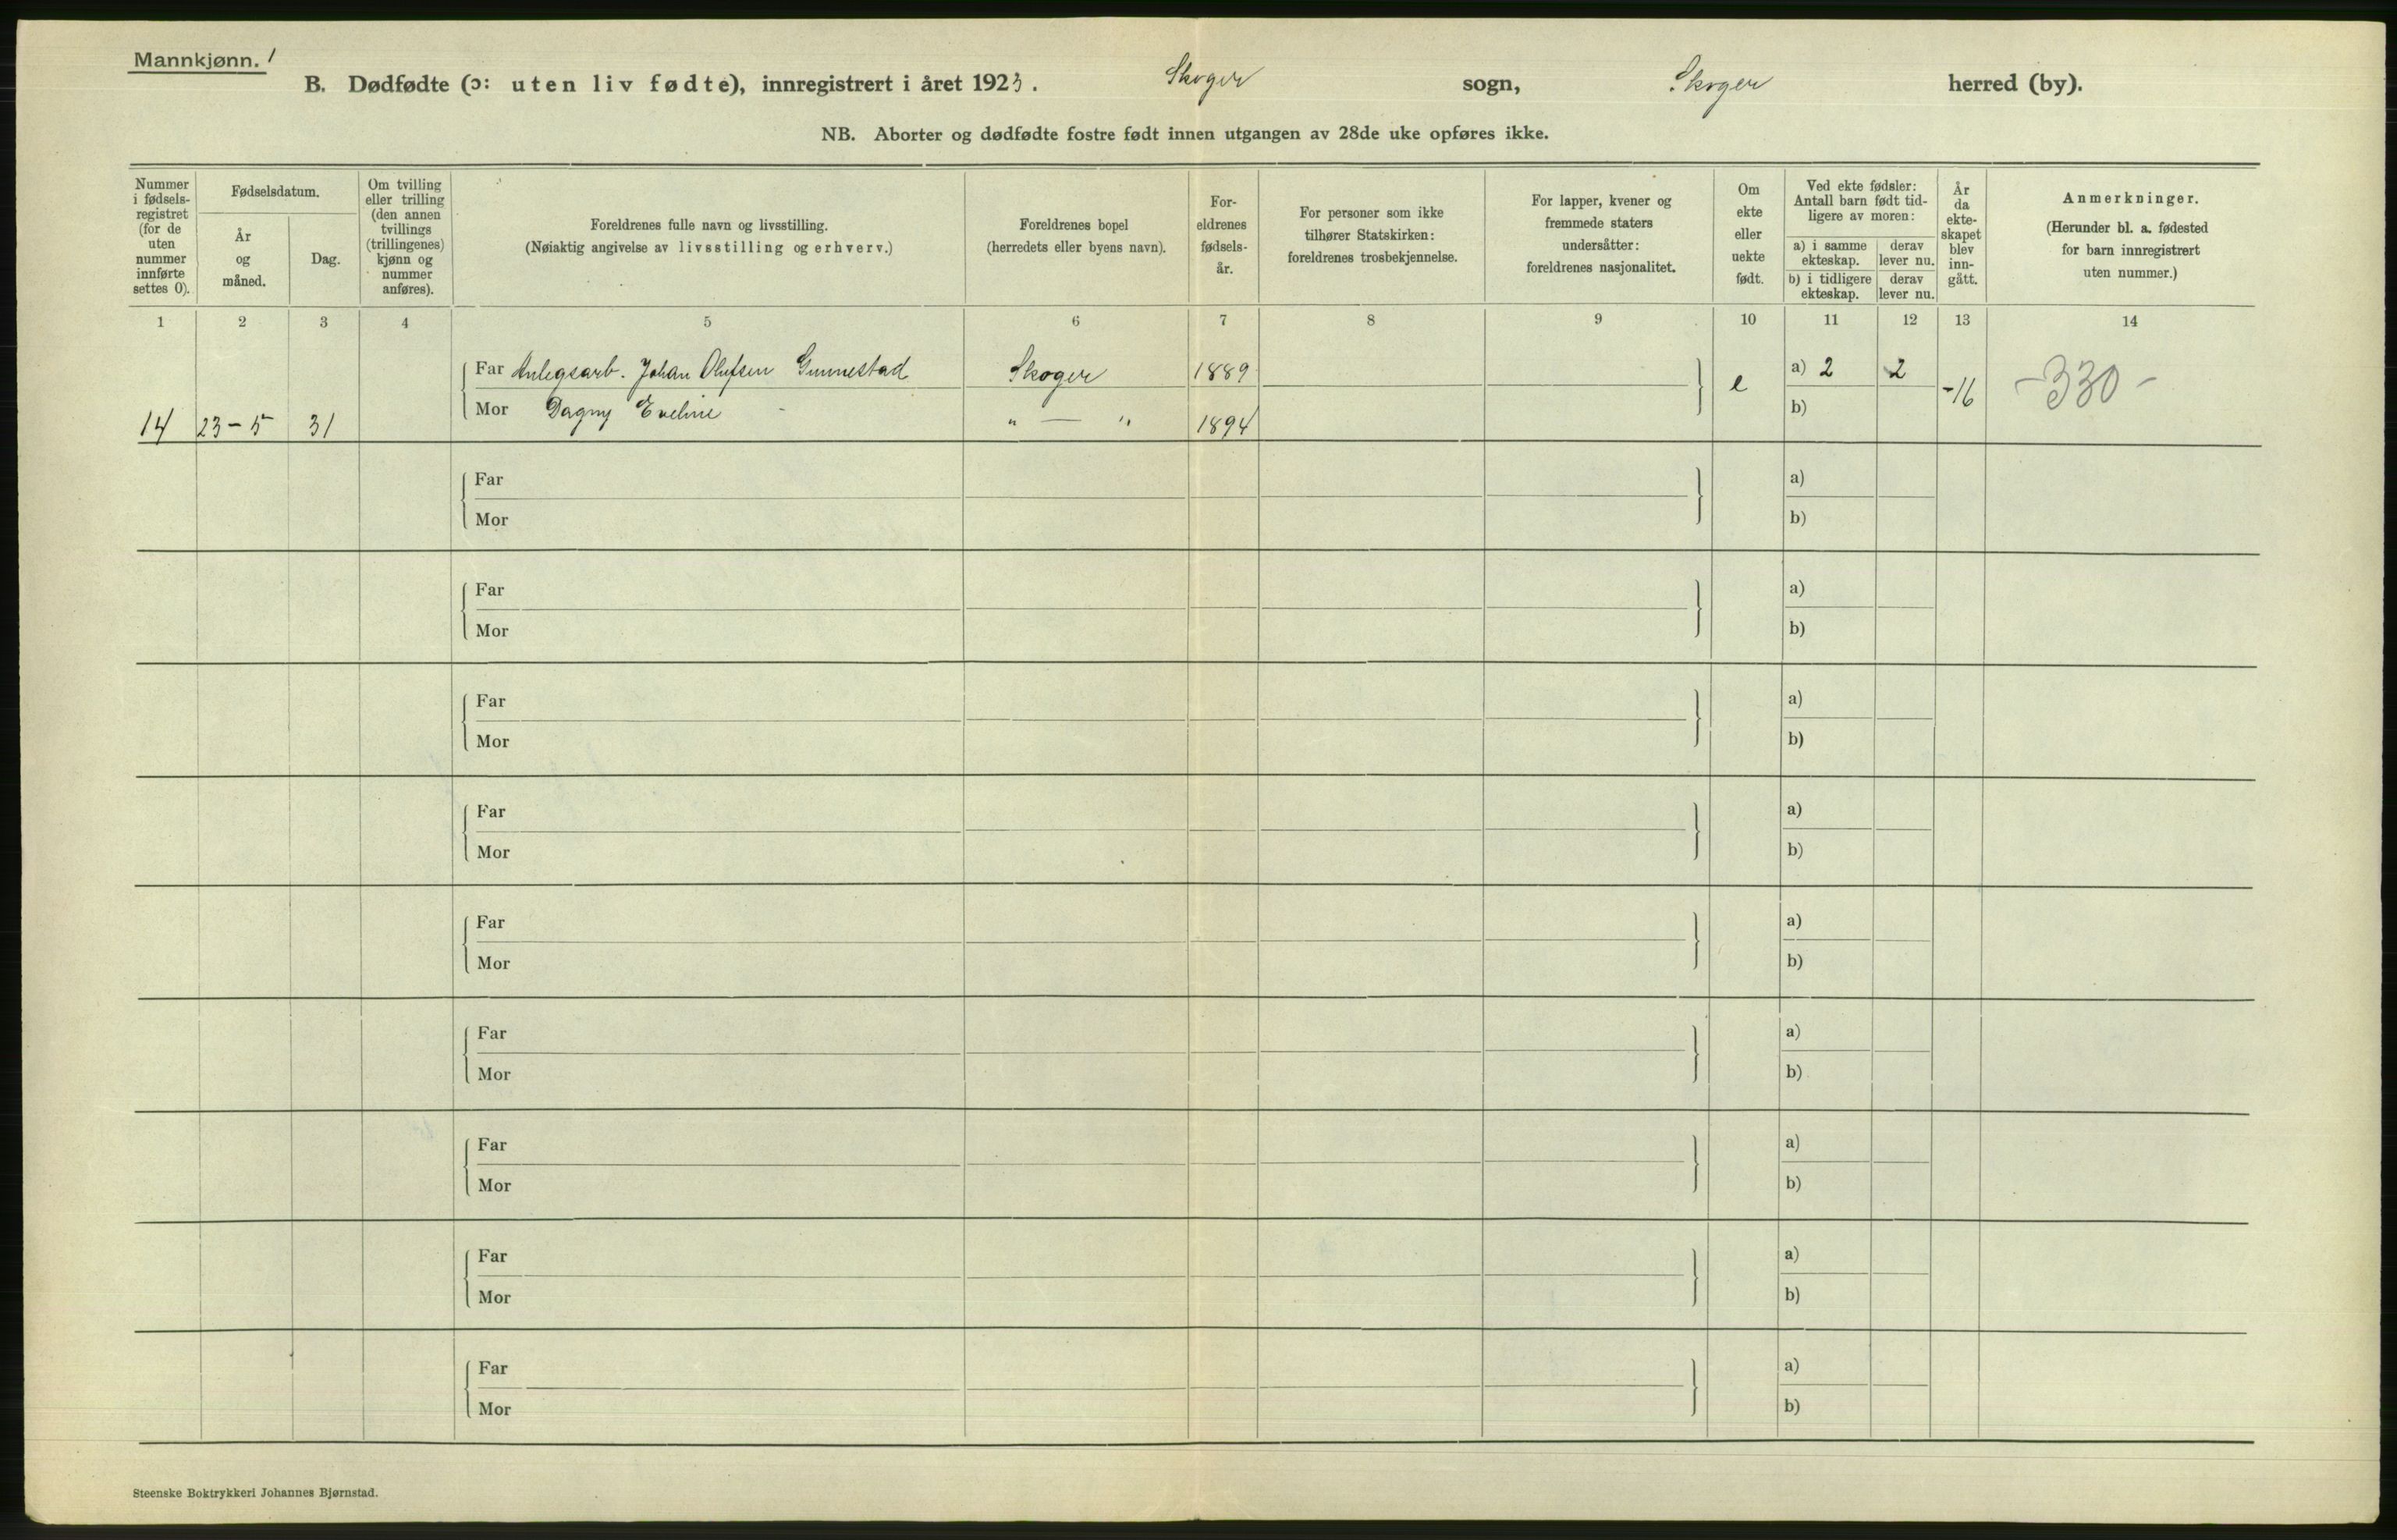 Mannkjønn. 1
B. Dødfødte (ɔ: uten liv fødte), innregistrert i året 1923. Skoger sogn, Skoger herred (by).
NB. Aborter og dødfødte fostre født innen utgangen av 28de uke opføres ikke.
Nummer
i fødsels-
registret
(for de
uten
nummer
innførte
settes 0).
Fødselsdatum.
År
og
måned.
Dag.
Om tvilling
eller trilling
(den annen
tvillings
(trillingenes)
kjønn og
nummer
anføres).
Foreldrenes fulle navn og livsstilling.
(Nøiaktig angivelse av livsstilling og erhverv.)
Foreldrenes bopel
(herredets eller byens navn).
For-
eldrenes
fødsels-
år.
For personer som ikke
tilhører Statskirken:
foreldrenes trosbekjennelse.
For lapper, kvener og
fremmede staters
undersåtter:
foreldrenes nasjonalitet.
Om
ekte
eller
uekte
født.
Ved ekte fødsler:
Antall barn født tid-
ligere av moren:
a) i samme
ekteskap.
derav
lever nu.
b) i tidligere
ekteskap.
derav
lever nu.
År
da
ekte-
skapet
blev
inn-
gått.
Anmerkninger.
(Herunder bl. a. fødested
for barn innregistrert
uten nummer.)
1 2 3 4 5 6 7 8 9 10 11 12 13 14
Far Anlegsarb. Johan Olufsen Gunnestad Skoger 1889 a) 2 2
14 23-5 31 Mor Dagny Eveline - " — " 1894 e b) -16 -330-
Far a)
Mor b)
Far a)
Mor b)
Far a)
Mor b)
Far a)
Mor b)
Far a)
Mor b)
Far a)
Mor b)
Far a)
Mor b)
Far a)
Mor b)
Far a)
Mor b)
Steenske Boktrykkeri Johannes Bjørnstad.